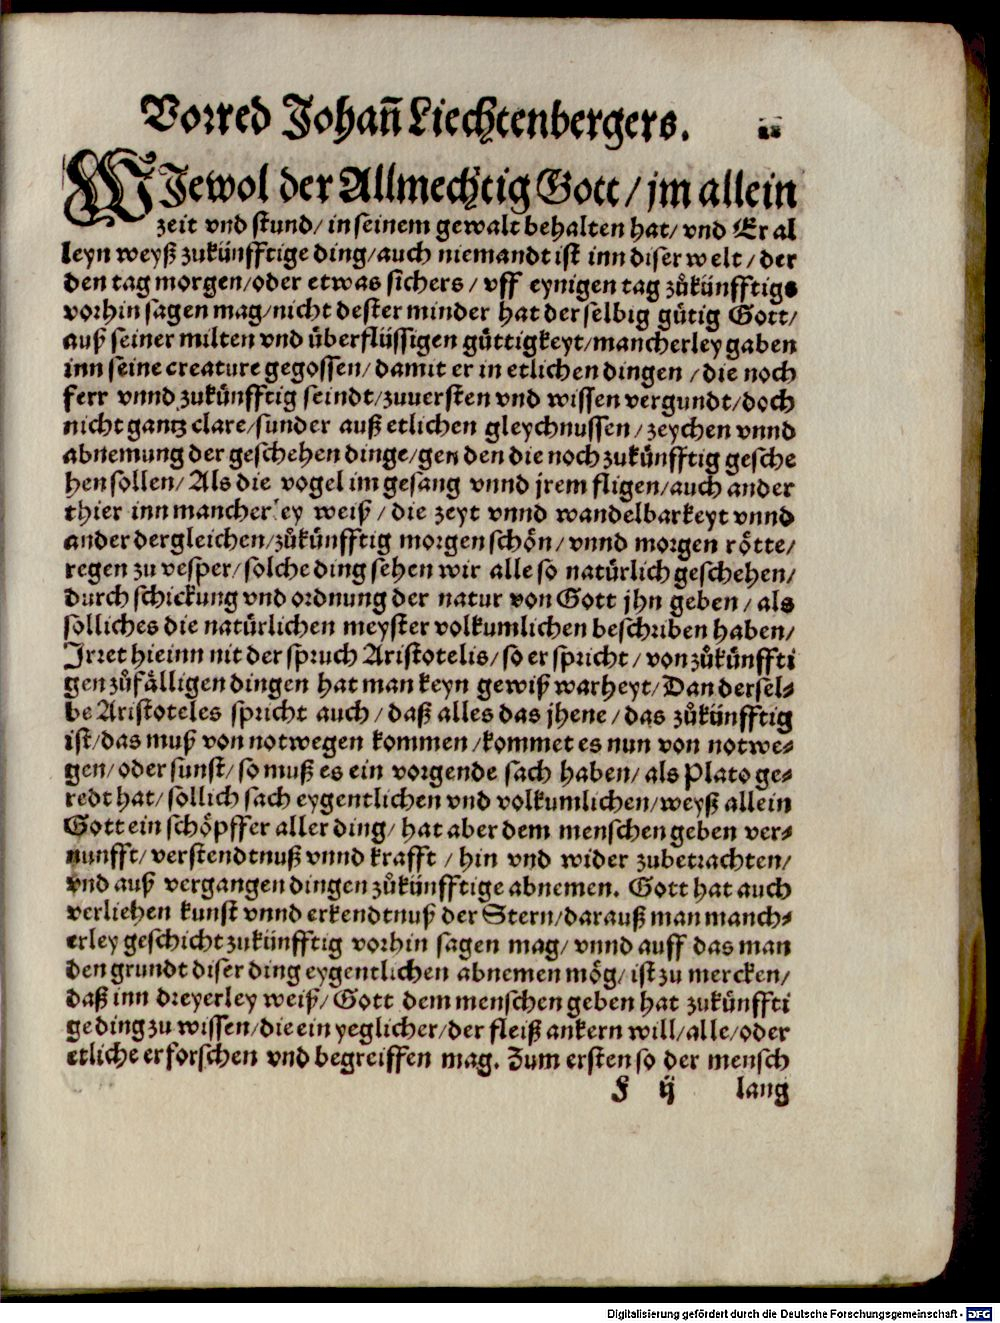 Vorred Johañ Liechtenbergers.
WJewol der Allmechtig Gott / jm allein
zeit vnd stund / in seinem gewalt behalten hat / vnd Er al
leyn weyß zukünfftige ding / auch niemandt ist inn diser welt / der
den tag morgen / oder etwas sichers / vff eynigen tag zůkünfftigs
vorhin sagen mag / nicht dester minder hat der selbig gütig Gott /
auß seiner milten vnd überflüssigen güttigkeyt / mancherley gaben
inn seine creature gegossen / damit er in etlichen dingen / die noch
ferr vnnd zukünfftig seindt / zuuersten vnd wissen vergundt / doch
nicht gantz clare / sunder auß etlichen gleychnussen / zeychen vnnd
abnemung der geschehen dinge / gen den die noch zukünfftig gesche
hen sollen / Als die vogel im gesang vnnd jrem fligen / auch ander
thier inn mancherley weiß / die zeyt vnnd wandelbarkeyt vnnd
ander dergleichen / zůkünfftig morgen schön / vnnd morgen rötte /
regen zu vesper / solche ding sehen wir alle so natürlich geschehen /
durch schickung vnd ordnung der natur von Gott jhn geben / als
solliches die natürlichen meyster volkumlichen beschriben haben /
Jrret hieinn nit der spruch Aristotelis / so er spricht / von zůkünffti
gen zůfälligen dingen hat man keyn gewiß warheyt / Dan dersel-
be Aristoteles spricht auch / daß alles das jhene / das zůkünfftig
ist / das muß von notwegen kommen / kommet es nun von notwe-
gen / oder sunst / so muß es ein vorgende sach haben / als Plato ge-
redt hat / sollich sach eygentlichen vnd volkumlichen / weyß allein
Gott ein schöpffer aller ding / hat aber dem menschen geben ver-
nunfft / verstendtnuß vnnd krafft / hin vnd wider zubetrachten /
vnd auß vergangen dingen zůkünfftige abnemen. Gott hat auch
verliehen kunst vnnd erkendtnuß der Stern / darauß man manch-
erley geschicht zukünfftig vorhin sagen mag / vnnd auff das man
den grundt diser ding eygentlichen abnemen mög / ist zu mercken /
daß inn dreyerley weiß / Gott dem menschen geben hat zukünffti
ge ding zu wissen / die ein yeglicher / der fleiß ankern will / alle / oder
etliche erforschen vnd begreiffen mag. Zum ersten so der mensch
F ij lang
Digitalisierung gefördert durch die Deutsche Forschungsgemeinschaft - DFG